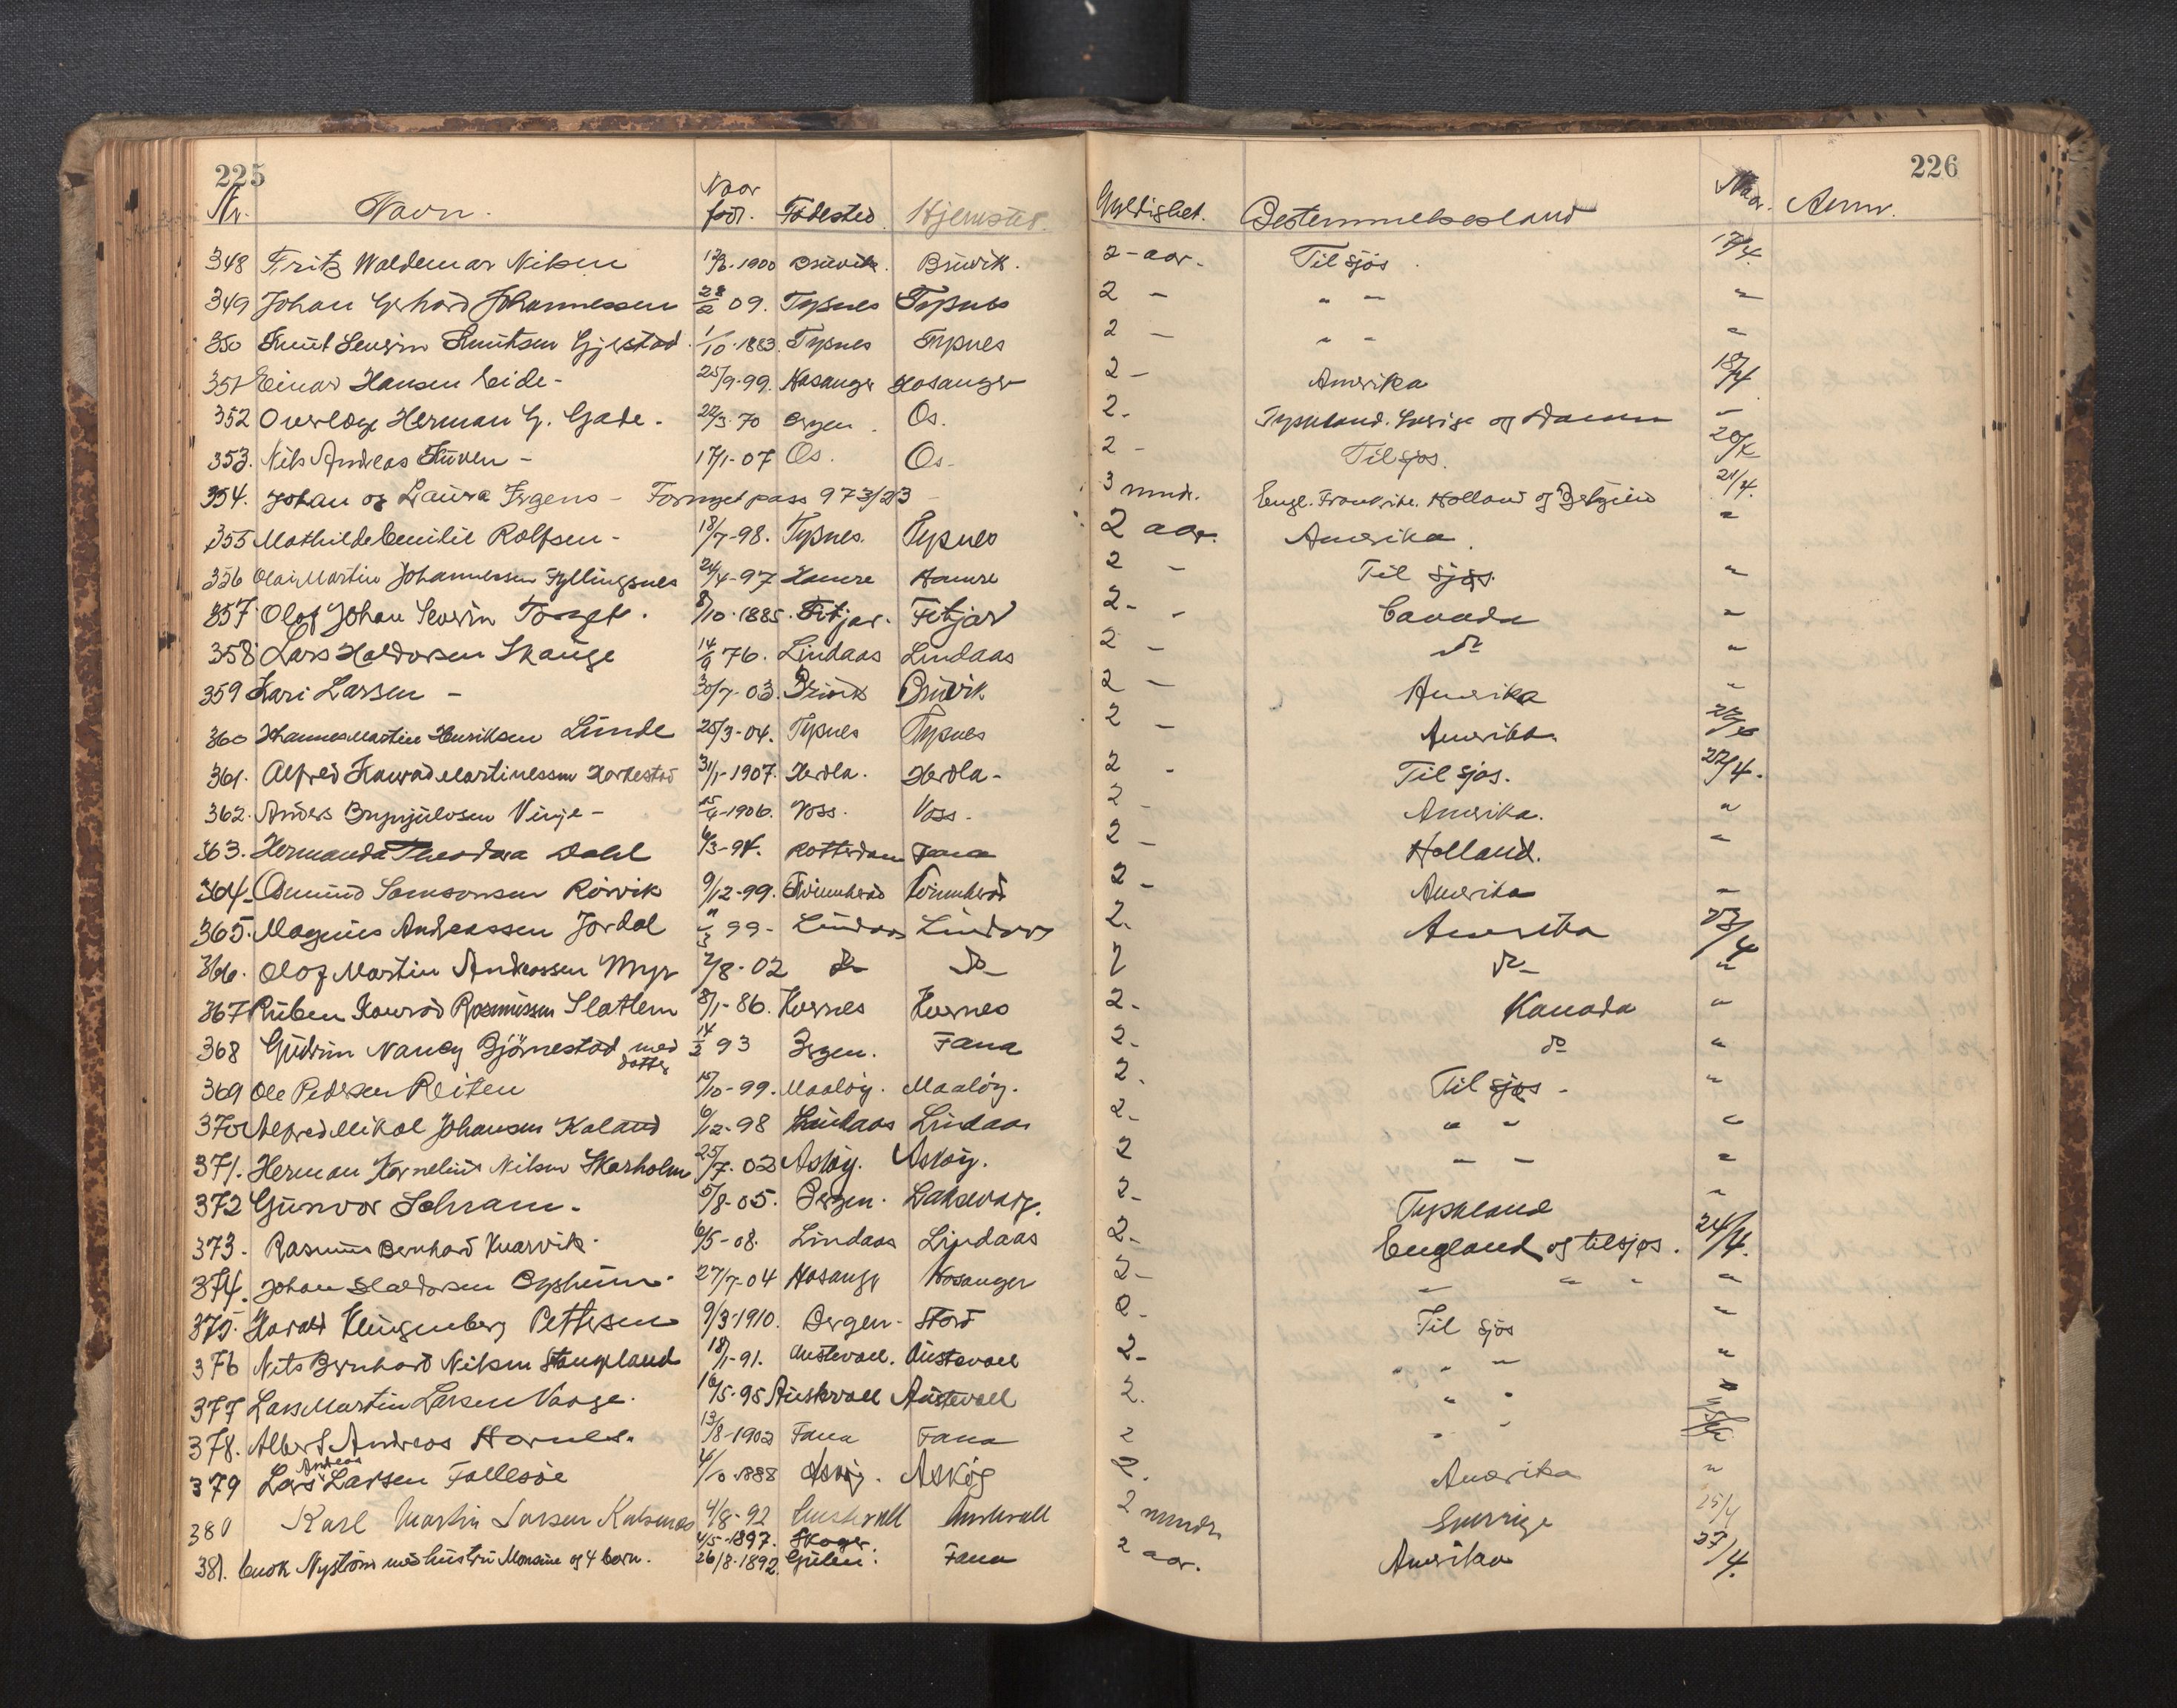 225
226
Nr. Navn. Naar föd. Födested Hjemsted. Gyldighet. Bestemmelsesland Naar. Anm.
348 Fritz Waldemar Nilsen 1900 Bruvik. Bruvik. 2-aar. Til sjös. 17/4.
349 Johan Gerhard Johannessen 28/2 09. Tysnes Tysnes 2 - " " "
350 Knut Severin Knutsen Gjerstad. 1/10.1883. Tysnes Tysnes 2 - " " "
351 Einar Hansen Eide- 25/9-99. Hosanger Hosanger 2 - Amerika 18/4
352 Overlæge Herman G. Gade. 22/3.70 Bergen. Os. 2. Tyskland. Sverige og Danm "
353. Nils Andreas Tuven - 17/1-07 Os. Os- 2 - Til sjös. 20/4
354. Johan og Laura Irgens - Fornyet pass 973/23 - 3 mndr. Engl. Frankrike. Holland og Belgien 21/4.
355 Mathilde Emilie Rolfsen - 18/7-98. Tysnes. Tysnes 2 aar. Amerika. "
356 Olai Martin Johannessen Fyllingsnes 24/4-97 Hamre Hamre 2 - Til sjøs. "
357. Olaf Johan Severin 8/10.1885. Fitjar. Fitjar 2- - Canada "
358 Lars Haldorsen Skauge 14/9 76. Lindaas Lindaas 2 - do "
359 Kari Larsen - 30/7-03. Bruvik Bruvik 2 - Amerika "
360 Johannes Martin Henriksen Lunde 25/3-04. Tysnes Tysnes 2 - Amerika. 22/4
361. Alfred Konrad Martinessen 31/1-1907. Herdla. Herdla- 2 - Til sjøs. 22/4.
362. Anders Brynjulvsen Vinje - 15/4-1906. Voss. Voss- 2 - Amerika. "
363. Hermanda Theodora Dahl 6/3-94. Rotterdam Fana 2 - Holland. "
364. Osmund Samsonsen Rörvik 9/12-99. Kvinnherad Kvinnherad 2 - Amerika "
365. Magnus Andreassen Jordal 11/3 99- Lindaas Lindaas 2. Amerika 23/4
366. Olaf Martin Andreassen Myr 2/8-02 do do 2 do "
367 Ruben Konrad Rasmussen Slatlem 8/1-86. Hernes Hernes 2- Kanada "
368 Gudrun Nancy Björnestad med datter 14/2 93 Bergen. Fana 2- do "
369 Ole Pedersen Reiten 15/10-99. Maalöy. Maalöy. 2. Til sjøs - "
370 Alfred Mikal Johansen Kaland 6/12-98 Lindaas Lindaas 2- " " "
371. Herman Kornelius Nilsen Skarholm 25/7-02 Asköy. Asköy. 2 " " "
372 Gunvor Schram. 5/8-05. Bergen. Laksevaag. 2- Tyskland "
373. Rasmus Bernhard Kvarvik. 6/5-08. Lindaas Lindaas 2- England og til sjøs. 24/4.
374. Johan Haldorsen Öysheim. 27/7-04 Hosanger Hosanger 2- " " " "
375. Harald Klingenberg Pettersen 9/3-1910. Bergen- Stord 2- Til sjös "
376 Nils Bernhard Nilsen Stangeland 18/1-91. Austevoll. Austevoll 2- " " " "
377 Lars Martin Larsen Vaage. 16/5-95 Austevoll Austevoll 2. " " "
378. Albert Andreas Hornes. 13/8-1902 Fana Fana 2 " "
379 Lars Andreas Larsen Follesöe 4/10-1888 Asköy. Asköy 2. Amerika "
380 Karl Martin Larsen 4/8-92 Austevoll Austevoll 2 mndr. Sverrige 25/4
381. Enok Nyström med hustru Monsine og 4 barn. 4/5-1897. 26/8-1892. Skoger. Gulen. Fana 2 aar. Amerika 27/4.